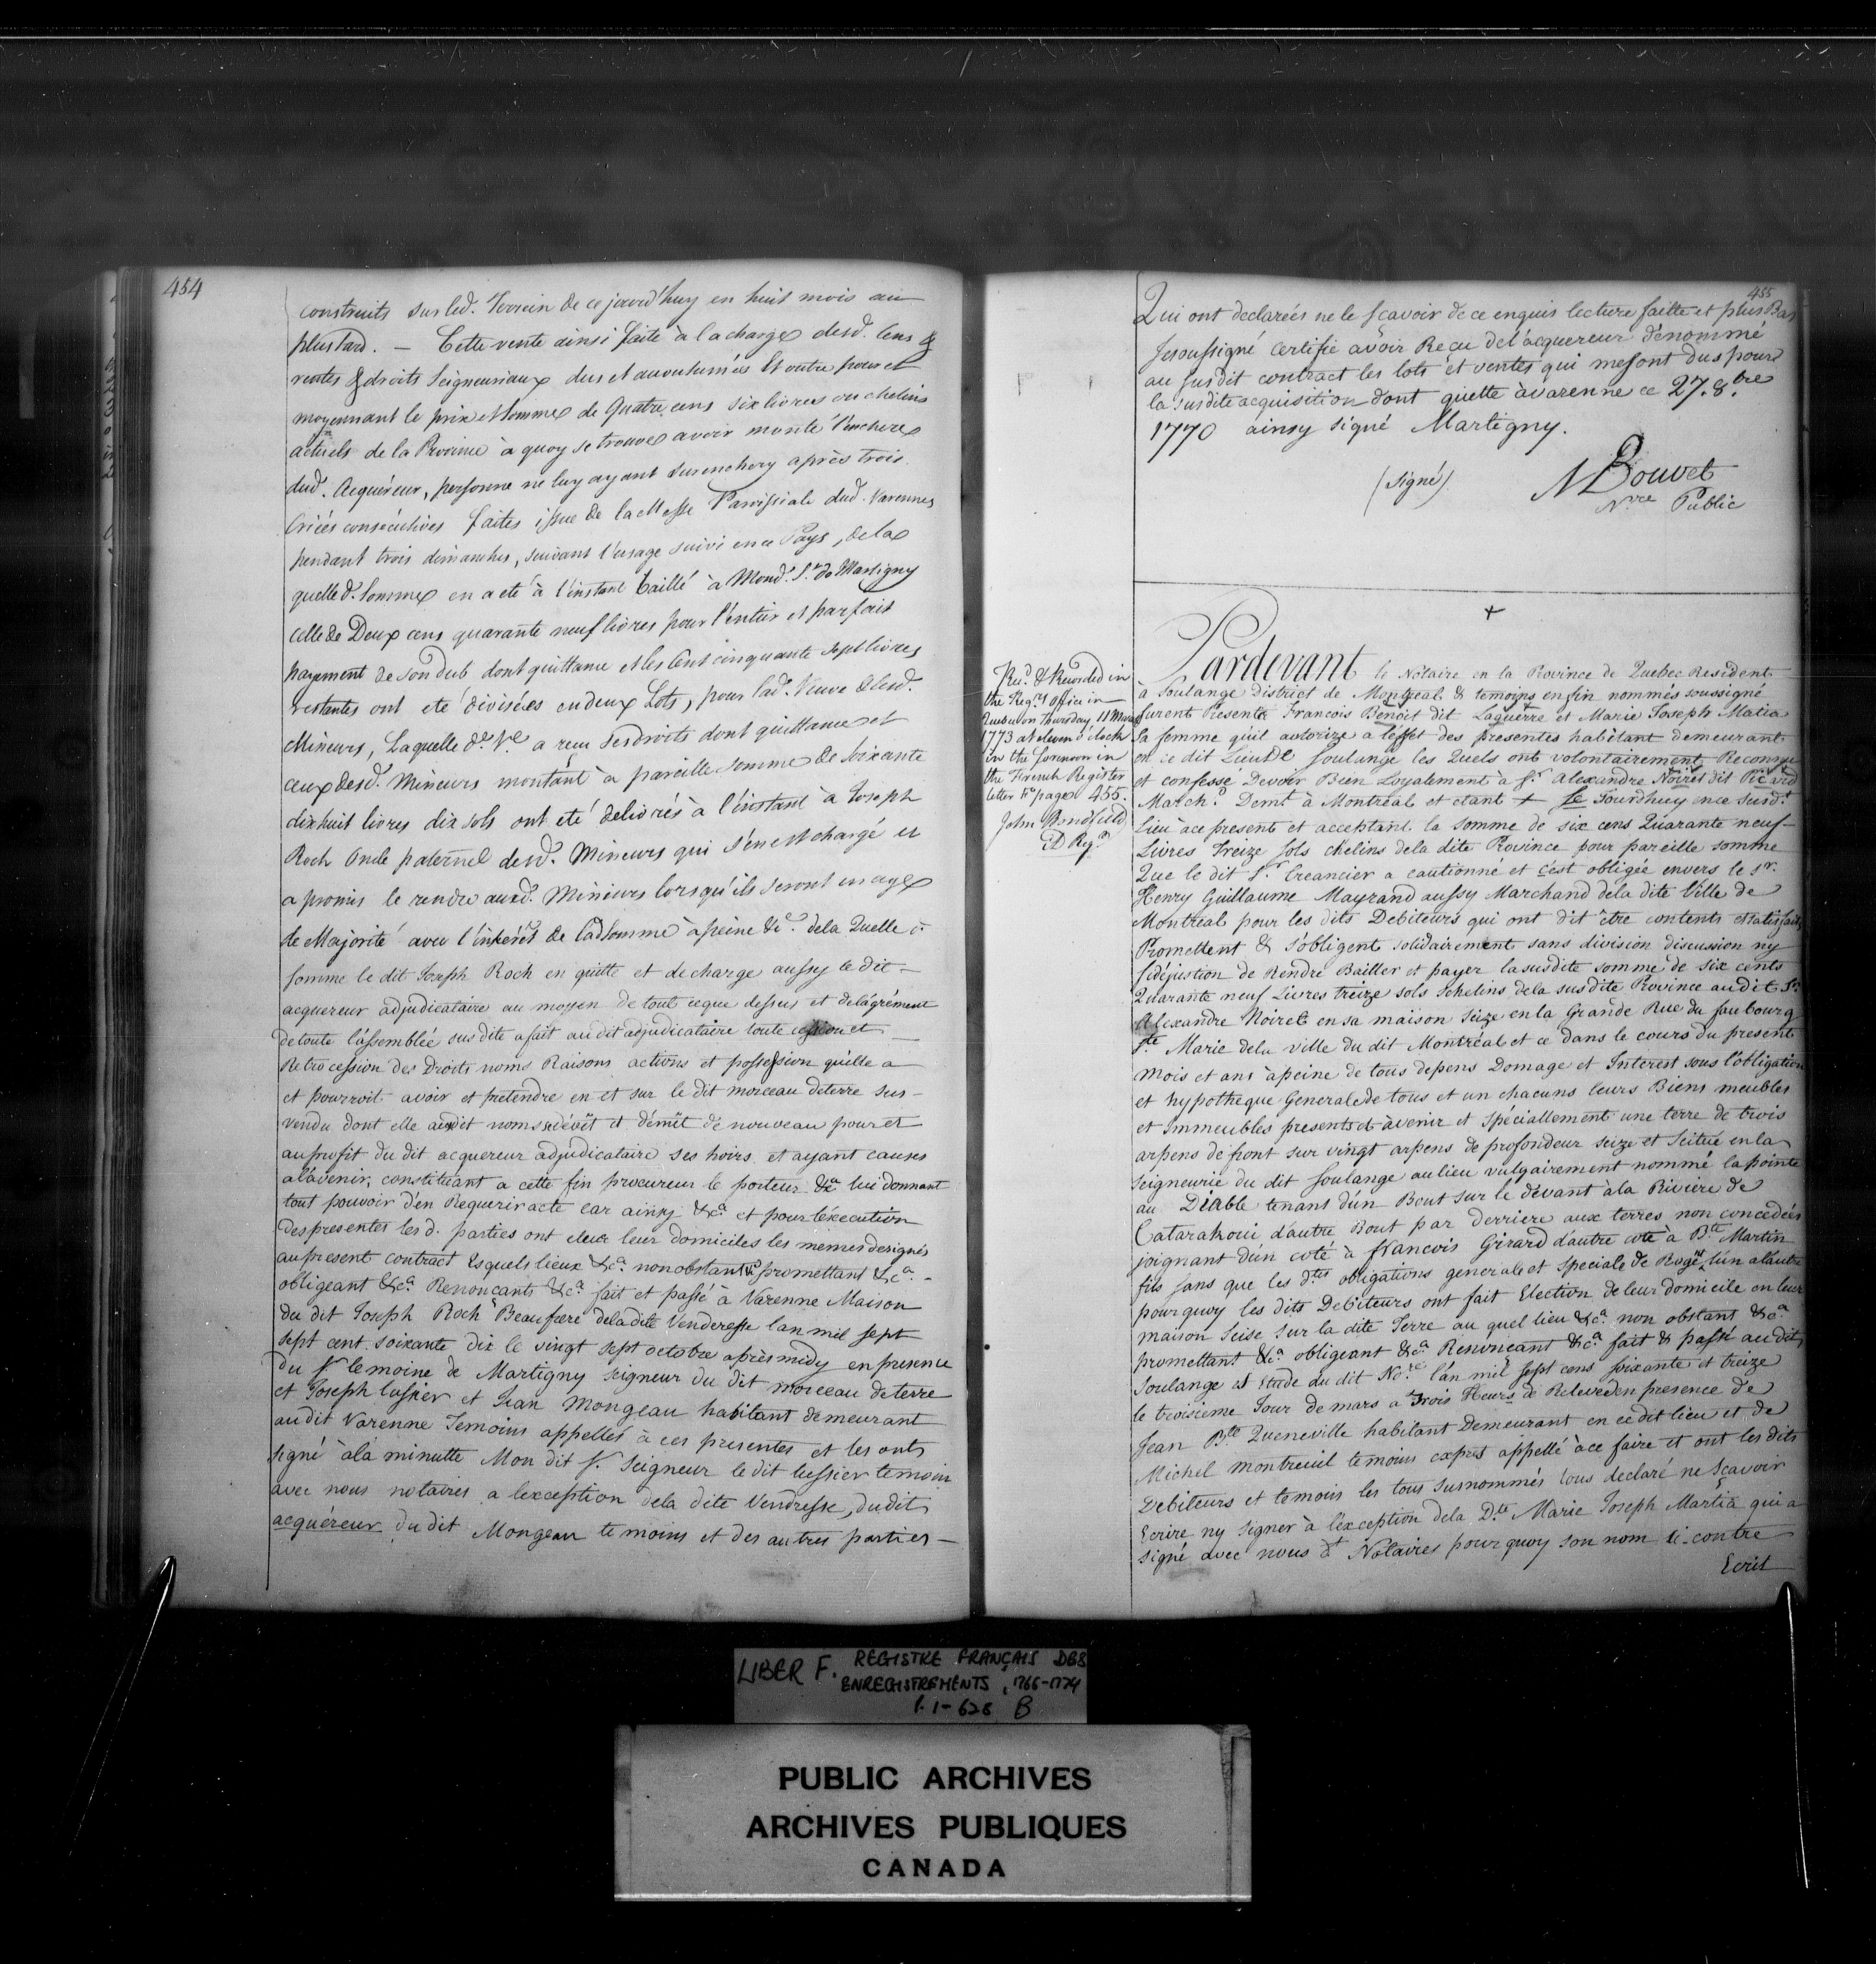 454
construits sur led. Terrein de ce jourd'huy en huit mois au
plus tard. — Cette vente ainsi faite à la charge desd. Cens &
rentes & droits Seigneuriaux dus et accoutumées Et outre pour et
moyennant le prix et somme de Quatre cens six livres ou chelins
actuels de la Province à quoy se trouve avoir monté l'enchere
dud. Acquéreur, personne ne luy ayant surenchery après trois
Criées consécutives faites issue de la Messe Paroissiale dud. Varennes
pendant trois dimanches, suivant l'usage suivi en ce Pays, de la
quelle d. somme en a eté à l'instant baillé à Mond. Sr. de Martigny
celle de Deux cens quarante neuf livres pour l'entier et parfait
payement de son dub dont quittance et les Cent cinquante sept livres
restantes ont eté divisées en deux Lots, pour lad. Veuve & lesd.
Mineurs, Laquelle de. Ve. a recu ses droits dont quittance et
ceux desd. Mineurs montant à pareille somme de soixante
dix huit livres dix sols ont eté delivrés à l'instant à Joseph
Roch Oncle paternel desd. Mineurs qui s'en est chargé et
a promis le rendre auxd. Mineurs lorsqu'ils seront en age
de Majorité avec l'intérêt de lad somme à peine &c. de la Quelle d.
somme le dit Joseph Roch en quitte et decharge aussy le dit —
acquereur adjudicataire au moyen de tout ce que dessus et de l'agrément
de toute l'assemblée sus dite a fait au dit adjudicataire toute cession et —
Retrocession des Droits noms Raisons actions et possession qu'elle a
et pourroit avoir et pretendre en et sur le dit morceau de terre sus —
vendu dont elle audit noms se dévêt et démêt de nouveau pour et
au profit du dit acquereur adjudicataire ses hoirs et ayant causes
a l'avenir, constituant a cette fin procureur le porteur &ca. lui donnant
tout pouvoir d'en Requerir acte car ainsy &ca. et pour l'éxecution
des presentes les d. parties ont eleur leur domiciles les memes designés
au present contract Esquels lieux &ca. nonobstant promettant &ca. —
obligeant &ca. Renonçants &ca. fait et passé à Varenne Maison
du dit Joseph Roch Beaufrere dela dite Venderesse lan mil sept
sept cent soixante dix le vingt sept octobre après midy en presence
du Sr. lemoine de Martigny seigneur du dit morceau de terre
et Joseph lussier et Jean Mongeau habitant demeurant
audit Varenne Temoins appellés à ces presentes et les onts
signé à la minutte Mon dit Sr. Seigneur le dit lussier temoin
avec nous notaires a l'exception dela dite Vendresse, du dit
acquéreur du dit Mongeau temoins et des autres parties —
455
Qui ont declarées ne le sçavoir de ce enquis lecture faitte et plus Bas
Je soussigné certifie avoir Reçu de l'acquereur dénommé
au susdit contract les lots et ventes qui me sont dus pour
la susdite acquisition dont quitte à varenne ce 27. 8.bre
1770 ainsy signé Martigny.
(signé) N Bouvet
Nre Public
Recd. & Recorded in
the Regrs. office in
Quebec on Thursday 11 March
1773 at eleven o'clock
in the forenoon in
the French Register
letter F page 455.
John
D Regr.
+
Pardevant le Notaire en la Province de Quebec Resident
à Soulange district de Montreal & temoins en fin nommés soussigné
furent Presents Francois Benoit dit Laguerre et Marie Joseph Matia
sa femme qu'il autorize à leffet des presentes habitant demeurant
en ce dit Lieu de Soulange les Quels ont volontairement Reconnu
et confessé Devoir Bien Loyalement à Sr. Alexandre Noiret dit Picard
Marchd. Demt. à Montréal et etant + ce Jourdhuy en ce susdt.
Lieu à ce present et acceptant la somme de six cens Quarante neuf —
Livres Treize sols chelins dela dite Province pour pareille somme
Que le dit Sr. Creancier a cautionné et c'est obligée envers le Sr.
Henry Guillaume Mayrand aussy Marchand dela dite Ville de
Montréal pour les dits Debiteurs qui ont dit être contents et satisfaits
Promettent & s'obligent solidairement sans division discussion ny
fidéjustion de Rendre Bailler et payer la susdite somme de six cents
Quarante neuf Livres treize sols schelins dela susdite Province au dit Sr.
Alexandre Noiret en sa maison size en la Grande Rue du faubourg
Ste. Marie dela ville du dit Montréal et ce dans le cours du present
mois et ans à peine de tous depens Domage et Interest sous l'obligation
et hypotheque Generale de tous et un chacuns leurs Biens meubles
et immeubles presents et àvenir et spéciallement une terre de trois
arpens de front sur vingt arpens de profondeur seize et scitué en la
seigneurie du dit Soulange au lieu vulgairement nommé la pointe
au Diable tenant d'un Bout sur le dévant à la Rivière de
Catarakoui d'autre Bout par derriere aux terres non concedées
joignant d'un coté à francois Girard d'autre coté à Bte. Martin
fils sans que les dtes. obligations generale et speciale de Rogent l'un a l'autre
pour quoy les dits Debiteurs ont fait Election de leur domicile en leur
maison seise sur la dite Terre au quel lieu &ca. non obstant &ca.
promettant &ca. obligeant &ca. Renonçant &ca. fait & passé au dit
Soulange et Etude du dit Nore. l'an mil sept cens soixante et treize
le troisieme Jour de mars a Trois Heurs de Relevé en presence de
Jean Bte. Queneville habitant Demeurant en ce dit lieu et de
Michel Montreuil temoins exprès appellé à ce faire et ont les dits
Debiteurs et temois les tous susnommés tous declaré ne Sçavoir
Ecrire ny signer à l'exception dela Dte. Marie Joseph Martia qui a
signé avec nous dt Notaires pour quoy son nom ci-contre
Ecrit
LIBER F. REGISTRE FRANÇAIS DES
ENREGISTREMENTS, 1766-1774
p. 1-628 B
PUBLIC ARCHIVES
ARCHIVES PUBLIQUES
CANADA